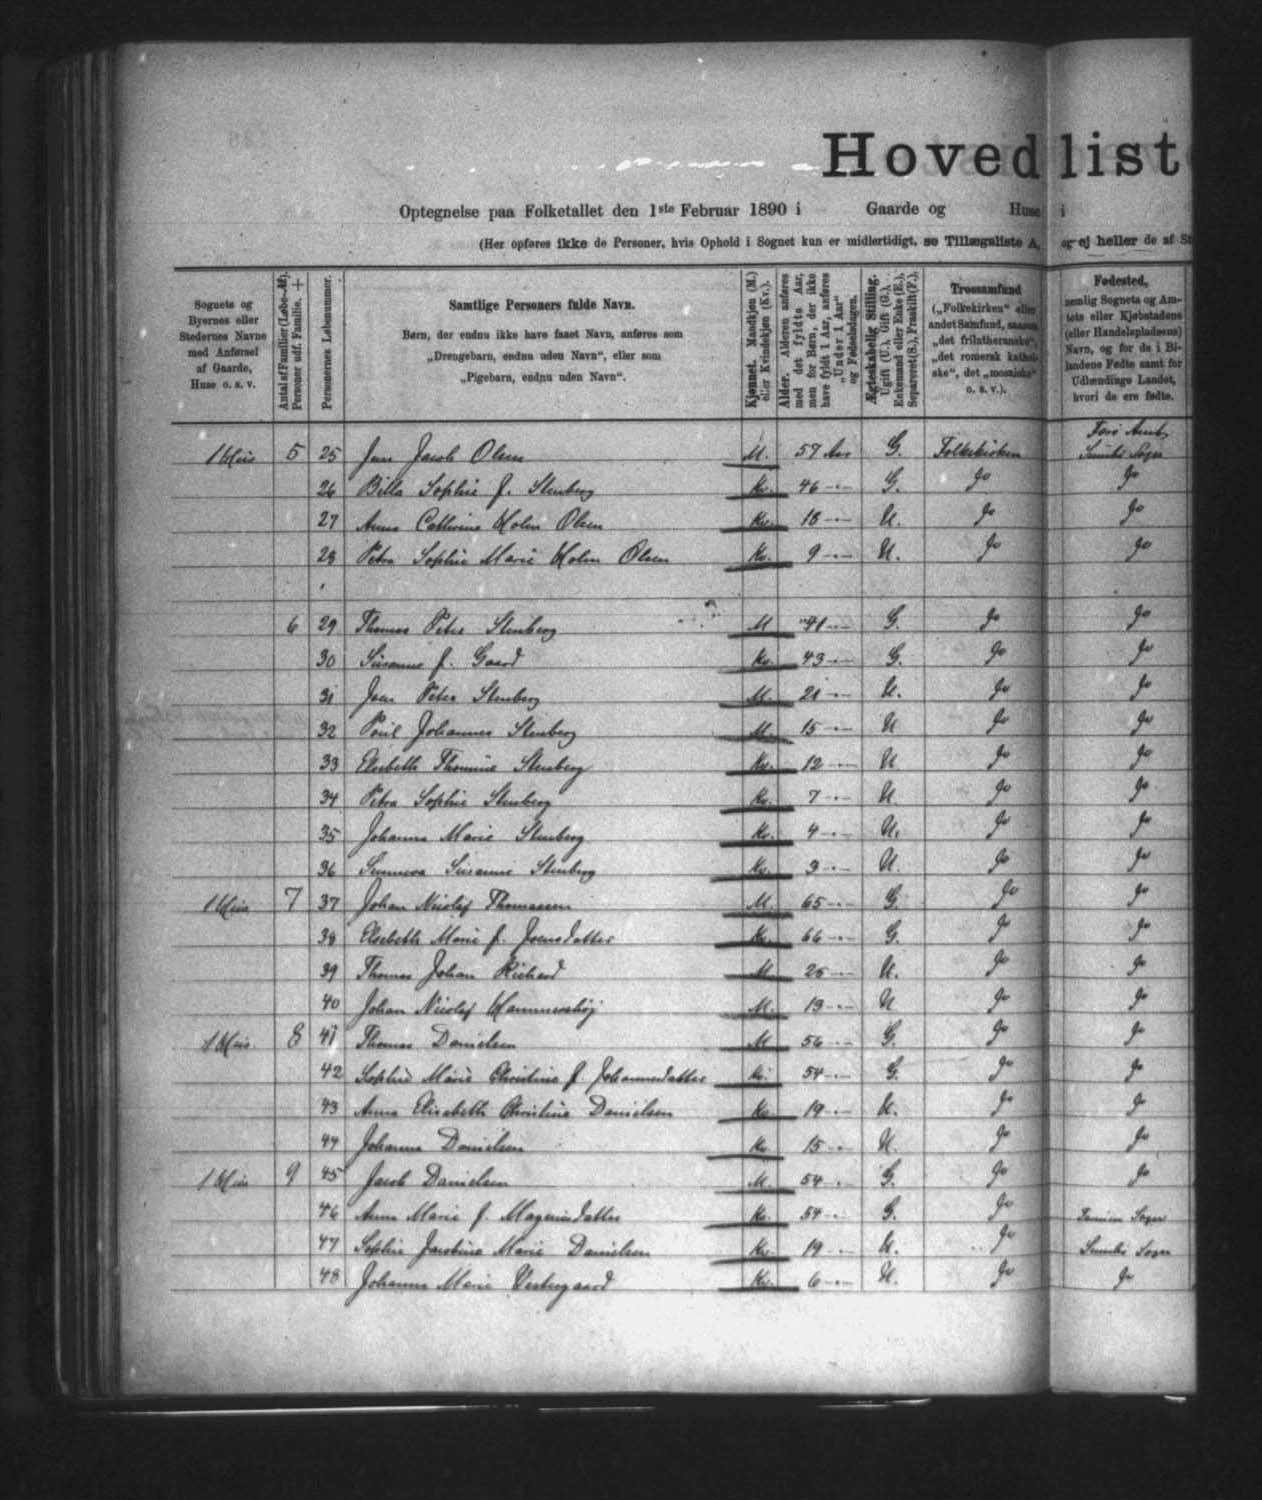 Hovedlist
Optegnelse paa Folketallet den 1ste Februar 1890 i Gaarde og Huse i
(Her opføres ikke de Personer, hvis Ophold i Sognet kun er midlertidigt, se Tillægsliste A, og ej heller de af St
Sognets og Byernes eller Stedernes Navne med Anførsel af Gaarde, Huse o. s. v.
Antal af Familier (Løbe-№). Personer udf. Familie. +
Personernes Løbenummer.
Samtlige Personers fulde Navn.
Børn, der endnu ikke have faaet Navn, anføres som
„Drengebarn, endnu uden Navn“, eller som
„Pigebarn, endnu uden Navn“.
Kjønnet. Mandkjøn (M.) eller Kvindekjøn (Kv.).
Alder. Alderen anføres med det fyldte Aar, men for Børn, der ikke have fyldt 1 Aar, anføres „Under 1 Aar“ og Fødselsdagen.
Ægteskabelig Stilling. Ugift (U.), Gift (G.), Enkemand eller Enke (E.), Separeret (S.), Fraskilt (F.).
Trossamfund („Folkekirken“ eller andet Samfund, saasom „det frilutheranske“, „det romersk katholske“, det „mosaiske“ o. s. v.).
Fødested, nemlig Sognets og Amtets eller Kjøbstadens (eller Handelspladsens) Navn, og for de i Bilandene Fødte samt for Udlændinge Landet, hvori de ere fødte.
Færø Amt,
1 Huus 5 25 Jacob Olsen M. 57 Aar G. Folkekirken Sumbø Sogn
26 Billa Sophie f. Stenberg Kv. 46 G. Do Do
27 Anna Cathrine Holm Olsen Kv. U. Do Do
28 Petra Sophie Marie Holm Olsen Kv. 9 U. Do Do
6 29 Thomas Peter Stenberg M. 41 G. Do Do
30 Susanne f. Gaard Kv. 43 G. Do Do
31 Peter Stenberg M. 21 U. Do Do
32 Poul Johannes Stenberg M. 15 U Do Do
33 Elsebeth Thomine Stenberg Kv. 12 U Do Do
34 Petra Sophie Stenberg Kv. 7 U. Do Do
35 Johanna Marie Stenberg Kv. 4 U. Do Do
36 Sunneva Susanne Stenberg Kv. 3 U. Do Do
1 Huus 7 37 Johan Nicolaj Thomassen M. 65 G. Do Do
38 Elsebeth Marie f. Joensdatter Kv. 66 G. Do Do
39 Thomas Johan Richard M. 25 U. Do Do
40 Johan Nicolaj Hammershøj M. 13 U Do Do
1 Huus 8 41 Thomas Danielsen M. 56 G. Do Do
42 Sophie Marie Christine f. Johannesdatter Kv. 54 G. Do Do
43 Anna Elisabeth Christine Danielsen Kv. 19 U. Do Do
44 Johanna Danielsen Kv. 15 U. Do Do
1 Huus 9 45 Jacob Danielsen M. 54 G. Do Do
46 Anna Marie f. Magnusdatter Kv. 54 G. Do Sogn
47 Sophie Jacobine Marie Danielsen Kv. 19 U. Do Sumbø Sogn
48 Johanna Marie Vestergaard Kv. 6 U. Do Do